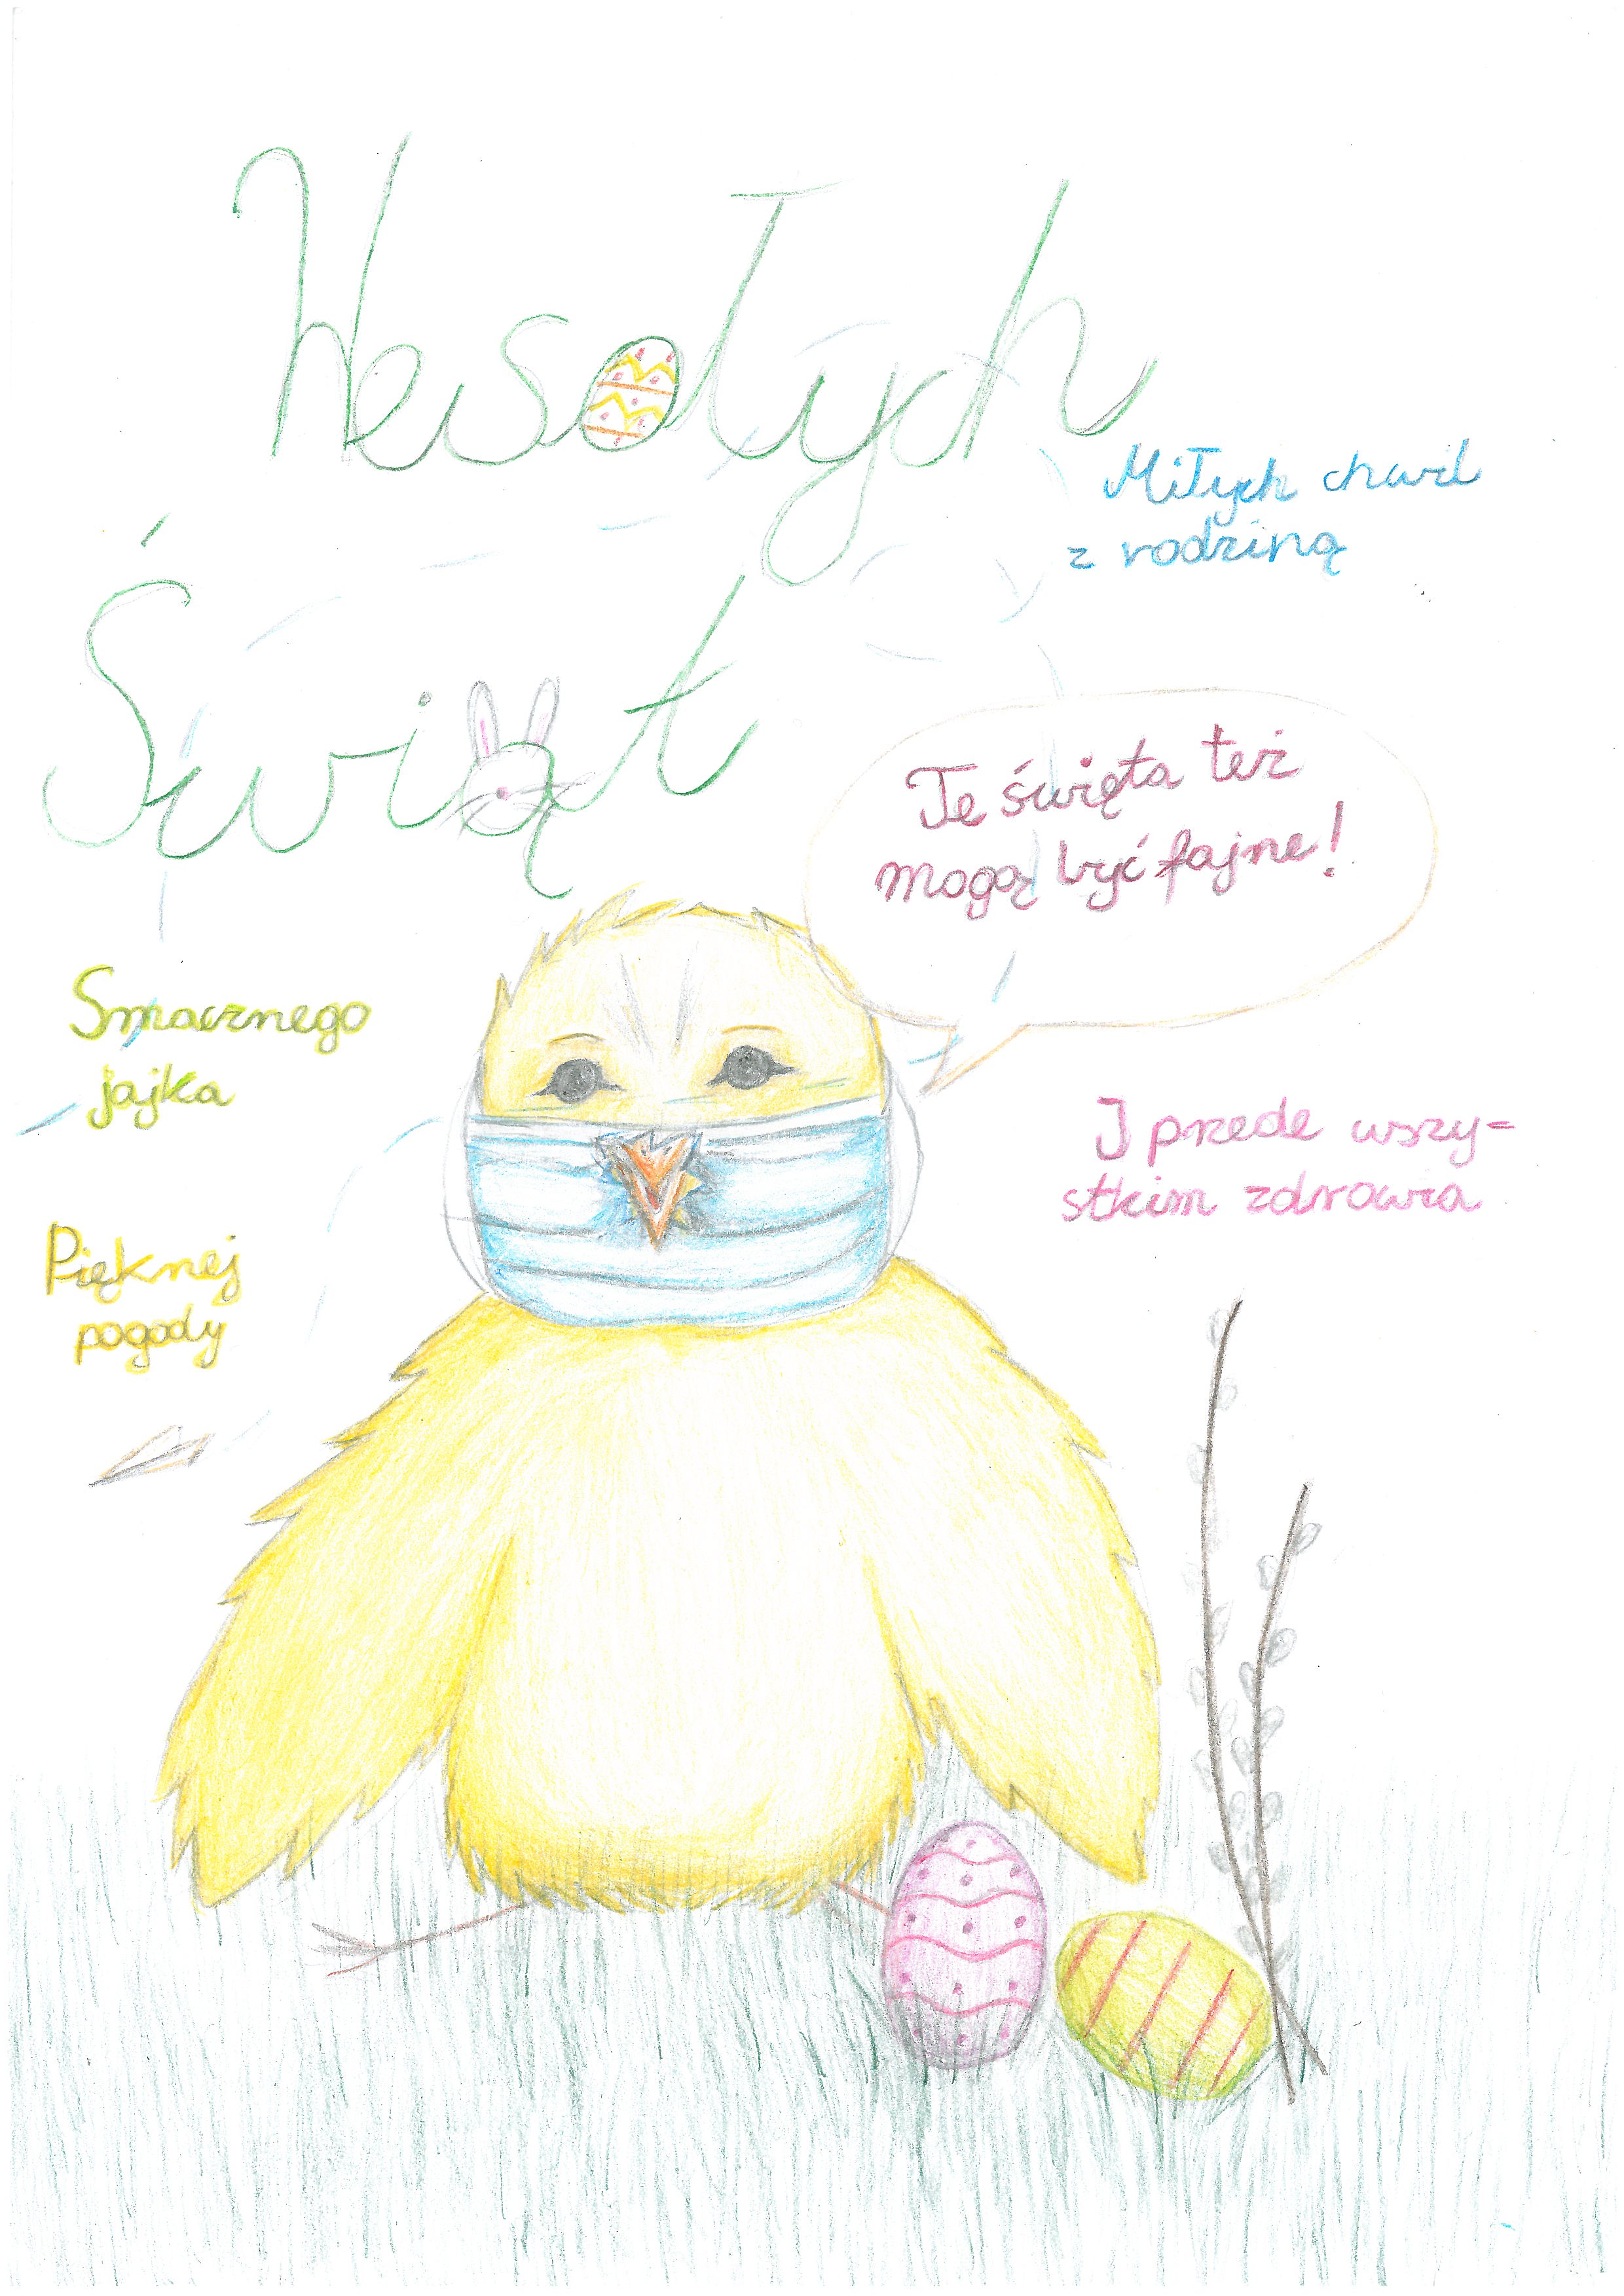 Wesołych
Świąt
Miłych chwil
z rodziną
Te święta też
mogą być fajne!
Smacznego
jajka
I przede wszy=
stkim zdrowia
Pięknej
pogody